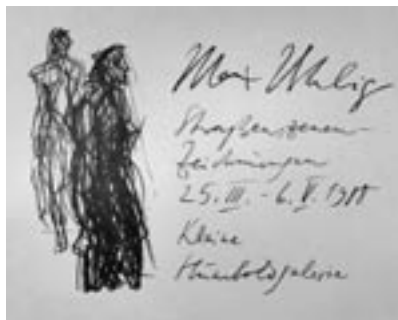 Max Uhlig
Straßenszenen-
Zeichnungen
25. III. - 6. V. 1988
Kleine
Humboldtgalerie